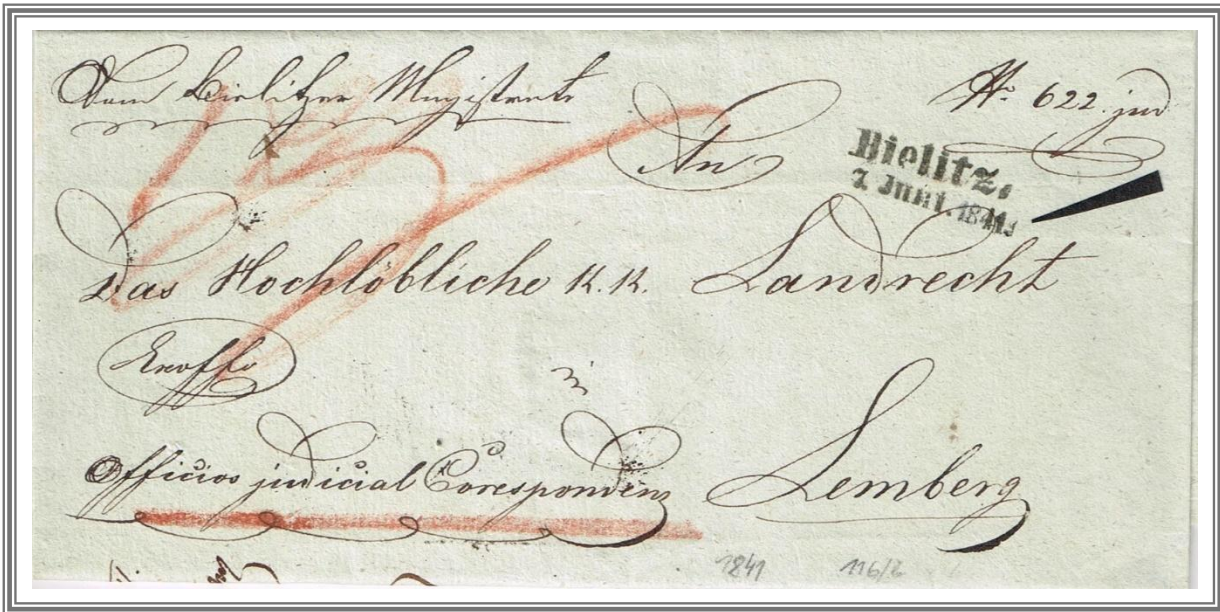 Vom Bielitzer Magistrate
No. 622 jud
An
Bielitz,
7. Juni. 1841.
Das Hochlöbliche K.K. Landrecht
in
Officios judicial Corespondenz
Lemberg
1841